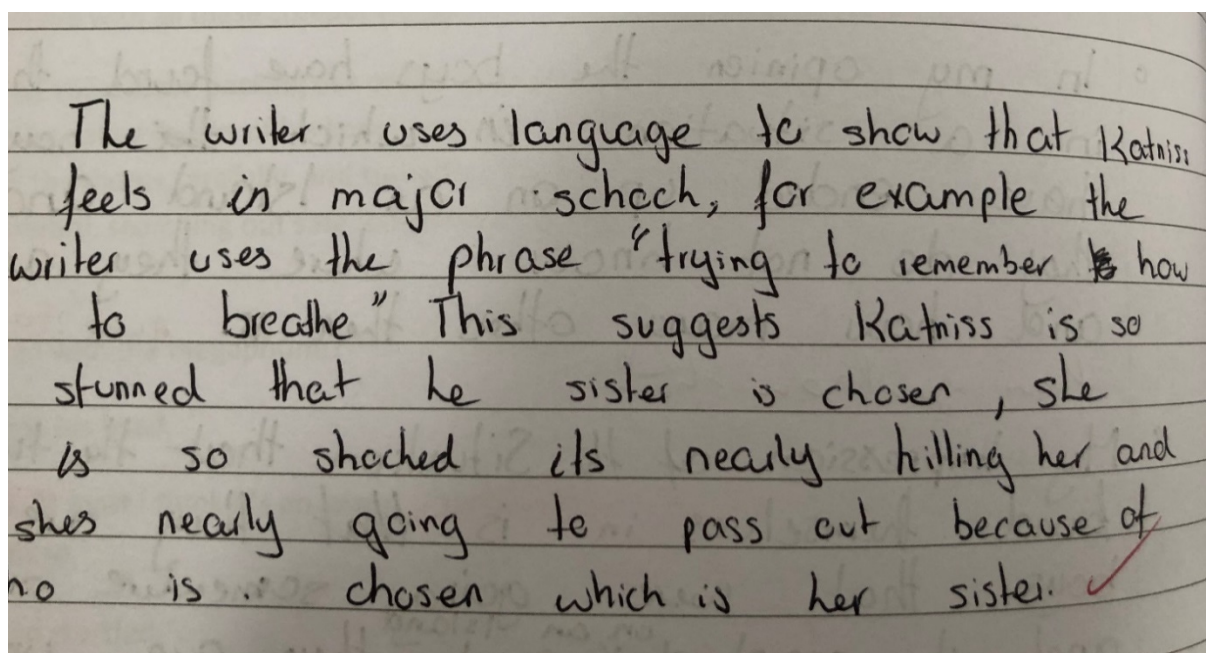 The writer uses language to show that Katniss
feels in major schock, for example the
writer uses the phrase "trying to remember how
to breathe" This suggests Katniss is so
stunned that he sister is chosen, she
is so shocked its nearly killing her and
shes nearly going to pass out because of
is chosen which is her sister.